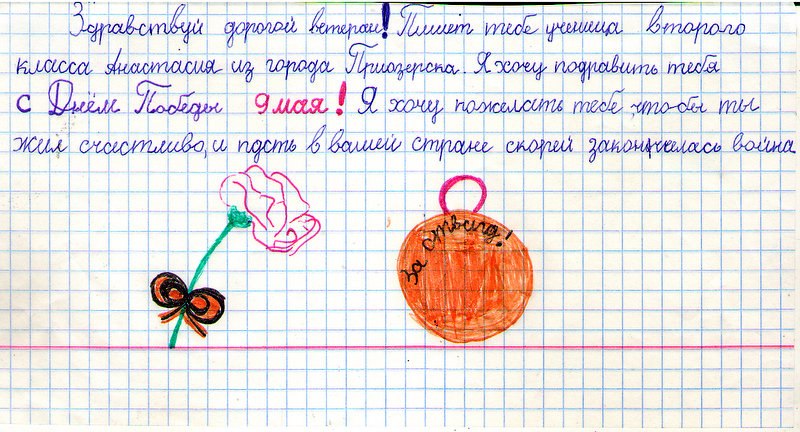 Здравствуй дорогой ветеран! Пишет тебе ученица второго
класса Анастасия из города Приозерска. Я хочу подравить тебя
с Днём Победы 9 мая! Я хочу пожелать тебе, что-бы ты
жил счастливо, и пусть в вашей стране скорей закончилась война
За отвагу!